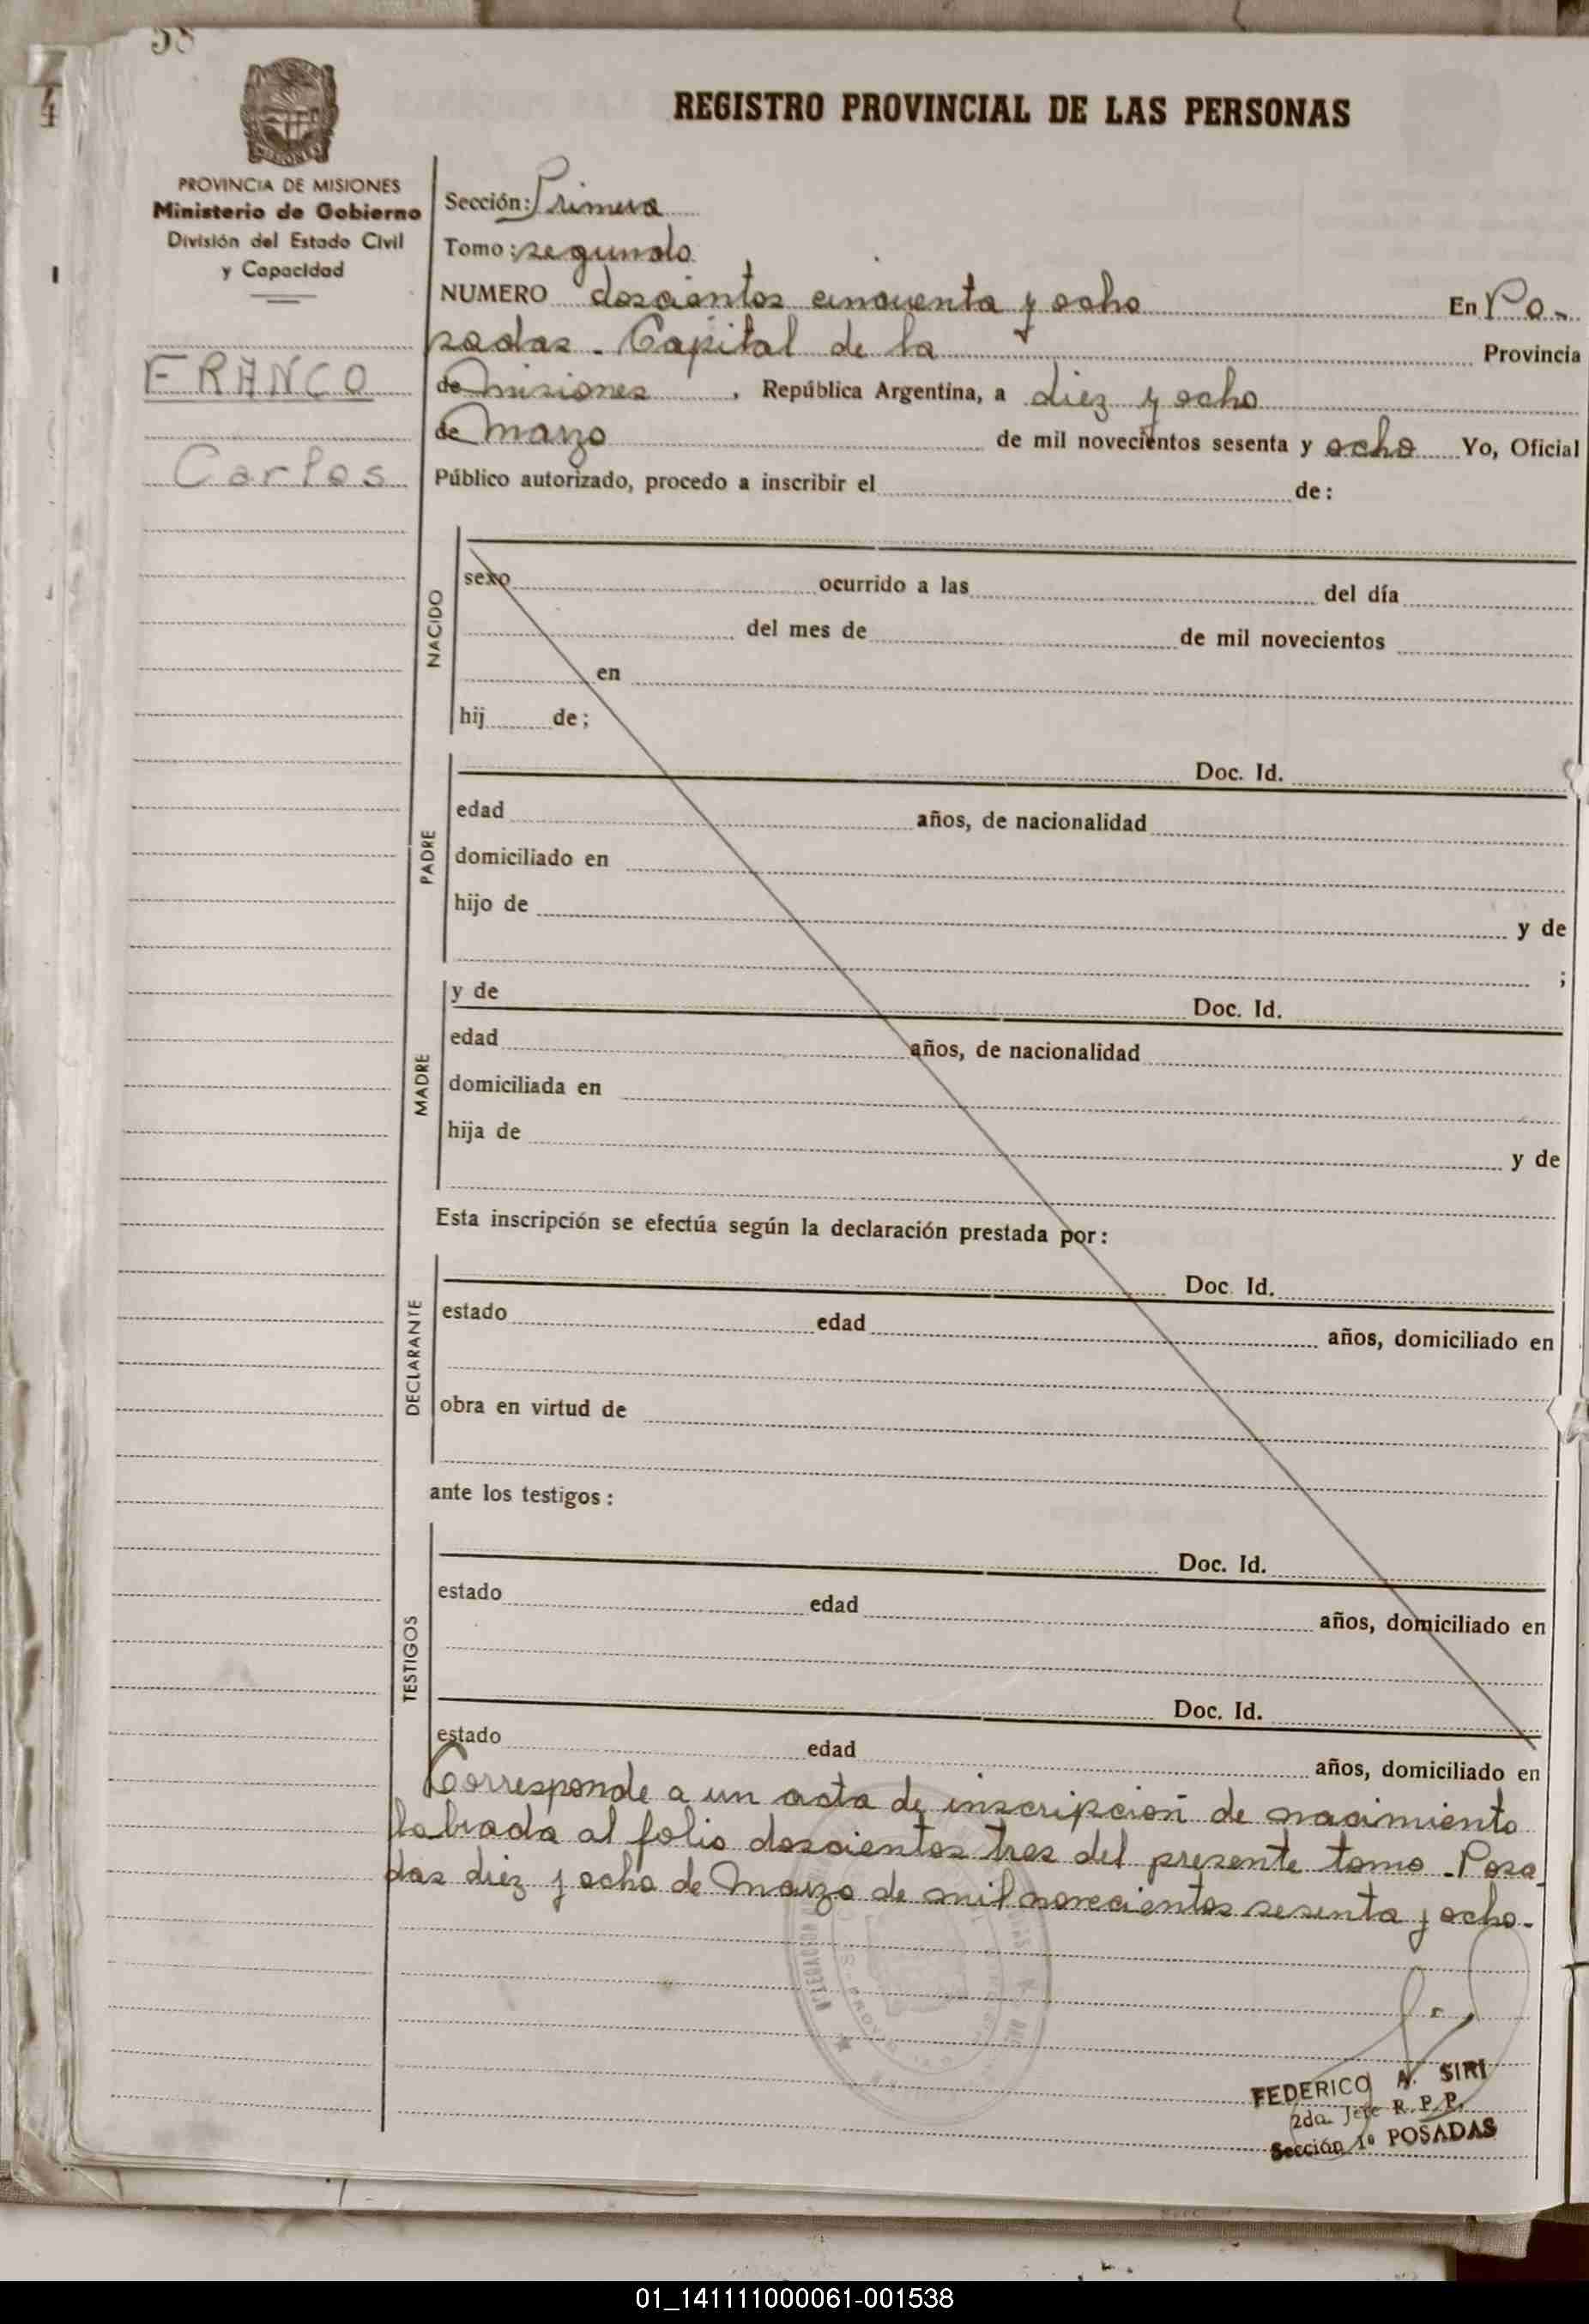 58
4
REGISTRO PROVINCIAL DE LAS PERSONAS
PROVINCIA DE MISIONES
Ministerio de Gobierno
División del Estado Civil
y Capacidad
FRANCO
Carlos
Sección: Primera
Tomo: segundo
NUMERO doscientos cincuenta y ocho En Po-
sadas. Capital de la Provincia
de misiones, República Argentina, a diez y ocho
de Marzo de mil novecientos sesenta y ocho Yo, Oficial
Público autorizado, procedo a inscribir el de:
NACIDO
sexo ocurrido a las del día
del mes de de mil novecientos
en
hij de;
PADRE
Doc. Id.
edad años, de nacionalidad
domiciliado en
hijo de y de
;
MADRE
y de Doc. Id.
edad años, de nacionalidad
domiciliada en
hija de y de
Esta inscripción se efectúa según la declaración prestada por:
DECLARANTE
Doc. Id.
estado edad años, domiciliado en
obra en virtud de
ante los testigos:
TESTIGOS
Doc. Id.
estado edad años, domiciliado en
Doc. Id.
estado edad años, domiciliado en
Corresponde a un acta de inscripción de nacimiento
labrada al folio doscientos tres del presente tomo. Posa
das diez y ocho de Marzo de mil novecientos sesenta y ocho.
FEDERICO A. SIRI
2do. Jefe R. P. P.
Sección 1ª POSADAS
01_141111000061-001538